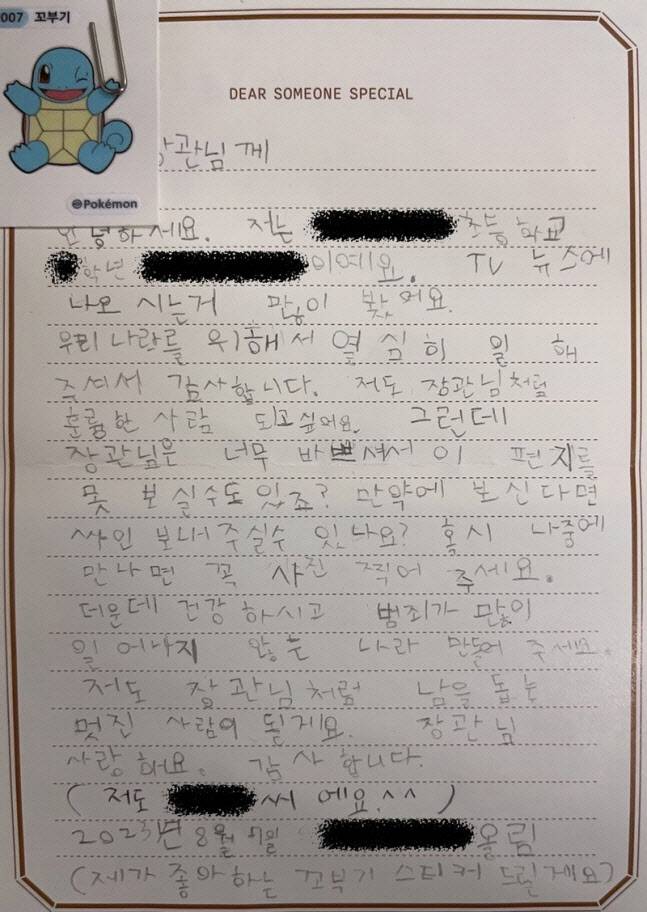 007 꼬부기
Pokémon
DEAR SOMEONE SPECIAL
장관님께
안녕하세요. 저는 초등학교
학년 이예요. TV 뉴스에
나오 시는거 많이 봤어요.
우리 나라를 위해서 열심히 일 해
주셔서 감사합니다. 저도 장관님처럼
훌륭한 사람 되고싶어요. 그런데
장관님은 너무 바쁘셔서 이 편지를
못 보실수도 있죠? 만약에 보신다면
싸인 보내주실수 있나요? 혹시 나중에
만나면 꼭 사진 찍어 주세요.
더운데 건강하시고 범죄가 많이
일어나지 않는 나라 만들어 주세요.
저도 장관님처럼 남을 돕는
멋진 사람이 될게요. 장관님
사랑해요. 감사합니다.
(저도 씨에요.^^)
2023년 8월 7일 올림
(제가 좋아하는 꼬부기 스티커 드릴게요)